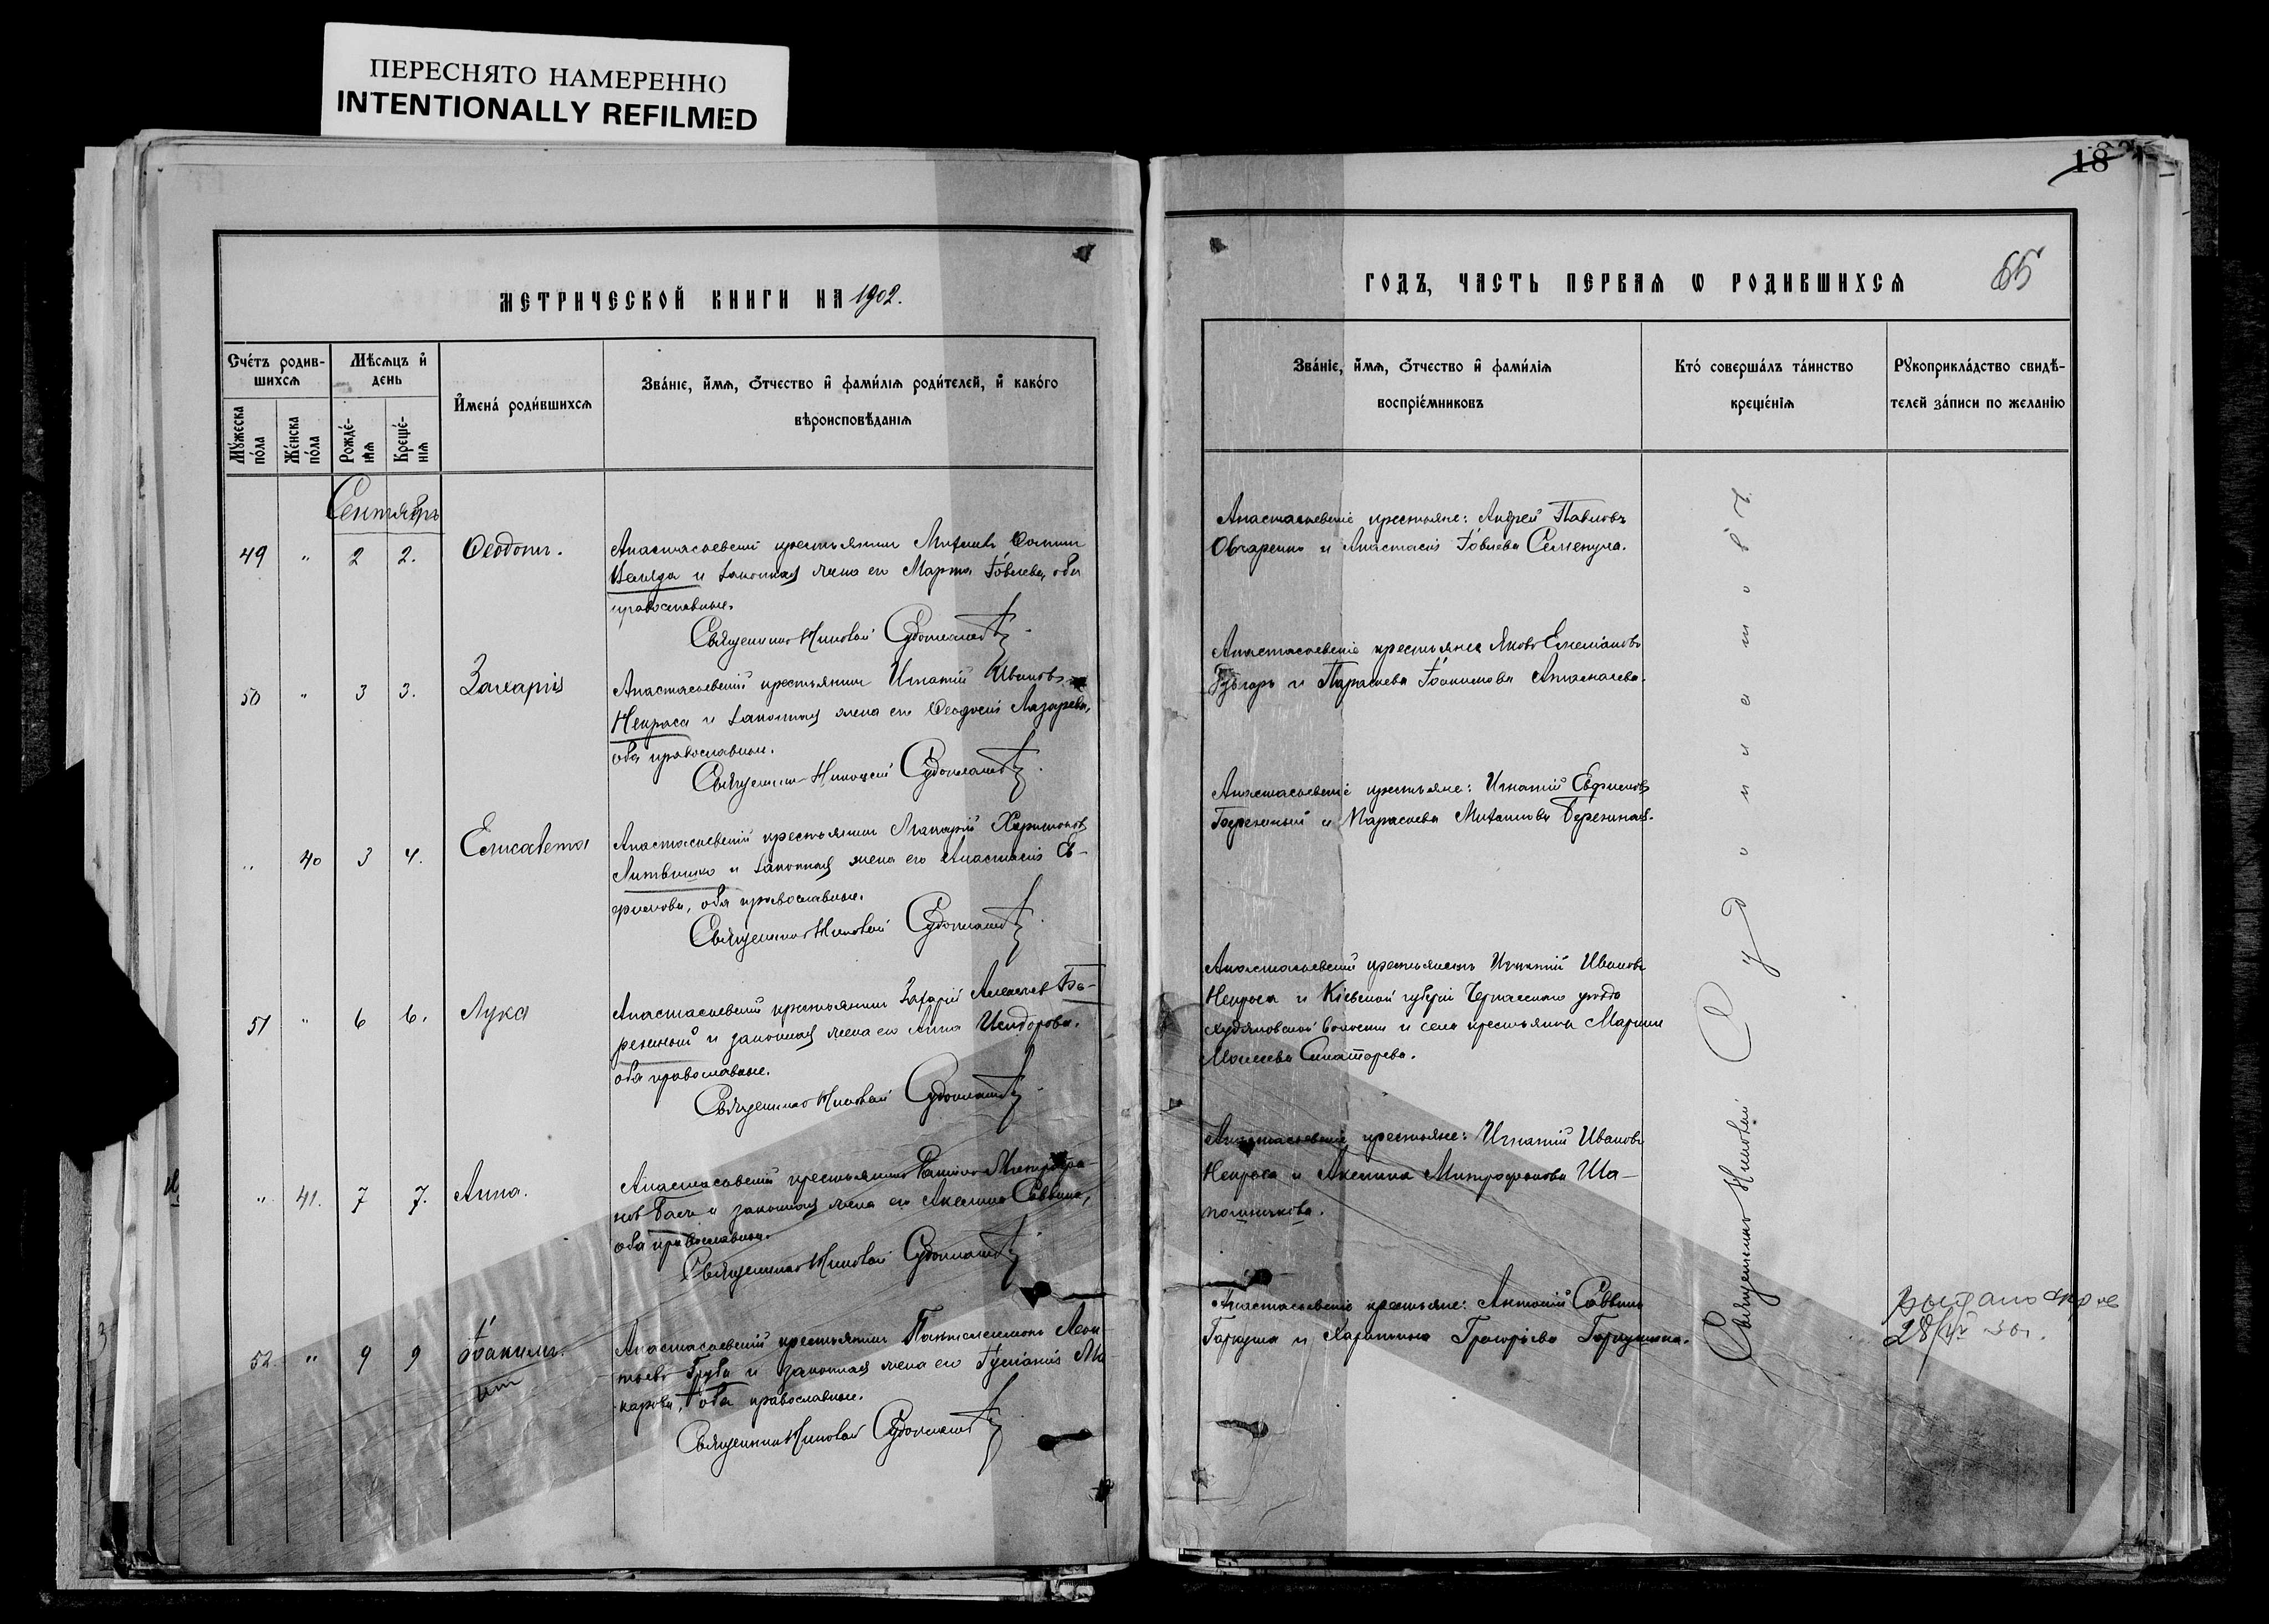 ПЕРЕСНЯТО НАМЕРЕННО
INTENTIONALLY REFILMED
18
65
МЕТРИЧЕСКОЙ КНИГИ НА 1902.
Счéтъ родив-
шихсѧ
Мѣсѧцъ и
день
Мꙋ́жеска
пóла
Жéнска
пóла
Рождé-
нїѧ
Крещé-
нїѧ
Именá роди́вшихсѧ
Звáнїе, и́мѧ, ѻ́тчество и фами́лїѧ роди́телей, и какóго
вѣроисповѣ́данїѧ
Сентябрь
49 " 2 2. Ѳеодотъ.
Анастасьевскій крестьянинъ
и законная жена его Марта Іовлева, оба
православные.
Священникъ Николай
50 " 3 3. Захарія
Анастасьевскій крестьянинъ Игнатій Ивановъ
Некраса и законная жена его Ѳеодосія Лазарева,
оба православные.
Священникъ Николай
" 40 3 4. Елисавета
Анастасьевскій крестьянинъ Макарій Харитоновъ
Литвинко и законная жена его Анастасія Ев-
фимова, оба православные.
Священникъ Николай
51 " 6 6. Лука
Анастасьевскій крестьянинъ Захарій Алексѣевъ Бе-
режный и законная жена его Анна Исидорова,
оба православные.
Священникъ Николай
" 41. 7 7. Анна.
Анастасьевскій крестьянинъ Митрофа-
новъ и законная жена его Аксенія Саввина,
оба православные.
Священникъ Николай
52. " 9 9 Іоакимъ.
Анастасьевскій крестьянинъ Пантелеимонъ Леон-
тьевъ Груба и законная жена его Іуліанія Ма-
карова, оба православные.
Священникъ Николай
ГОДЪ, ЧАСТЬ ПЕРВАѦ Ѡ РОДИВШИХСѦ
Звáнїе, и́мѧ, ѻ́тчество и фами́лїѧ
воспрїéмниковъ
Ктó совершáлъ тáинство
крещéнїѧ
Рꙋкоприклáдство свидѣ́-
телей зáписи по желáнїю
Анастасьевскіе крестьяне: Андрей Павловъ
Овчаренко и Анастасія Іовлева Семенуха.
Анастасьевскіе крестьяне Яковъ Емеліановъ
и Параскева Іоакимова Апанасева.
Анастасьевскіе крестьяне: Игнатій Евфимовъ
Бережный и Параскева Михаилова Бережная.
Анастасьевскій крестьянинъ Игнатій Ивановъ
Некраса и Кіевской губерніи Черкасскаго уѣзда
Худяковской волости и села крестьянка Марина
Моисеева
Анастасьевскіе крестьяне: Игнатій Ивановъ
Некраса и Аксенія Митрофанова Ша-
пошникова.
Анастасьевскіе крестьяне: Антоній Саввинъ
Гаркуша и Харитина Григорьева Гаркушина.
Священникъ Николай
Выдано
28/IV 30г.